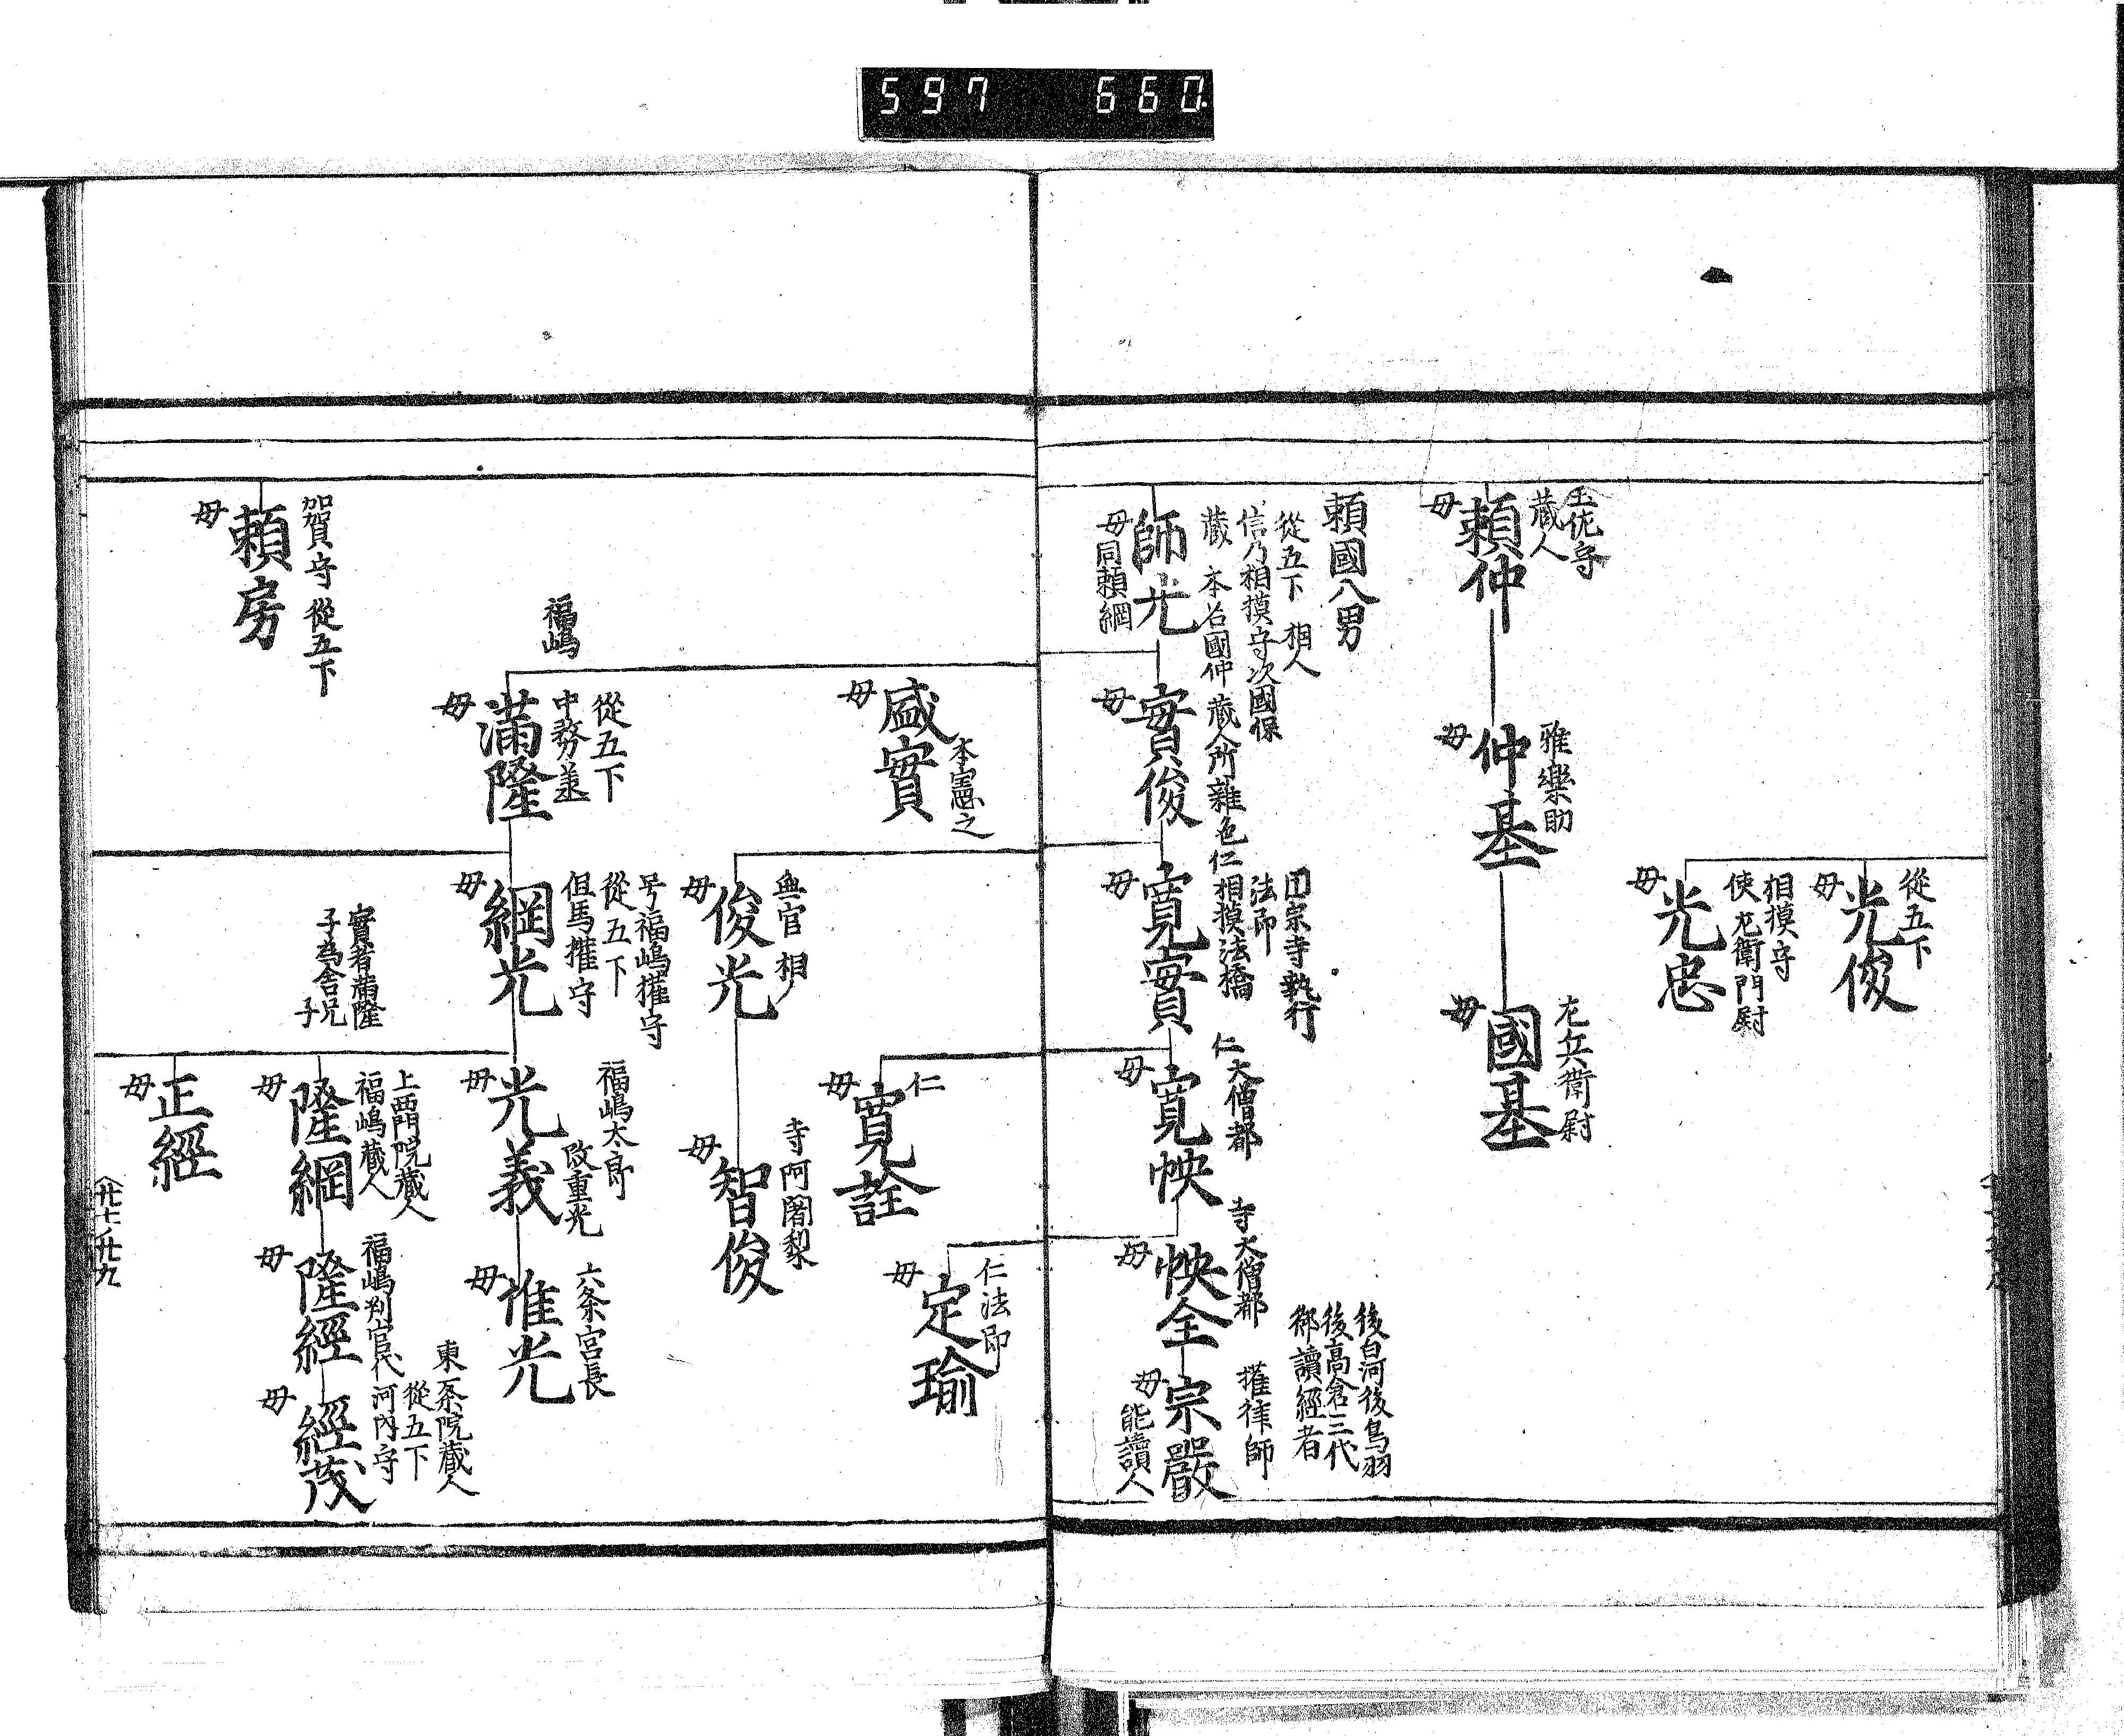 597 660
從五下
光俊
母
相摸守
使左衛門尉
光忠
母
土佐守
藏人
頼仲
母
雅樂助
仲基
母
左兵衛尉
國基
母
頼國八男
從五下 相人
信乃相摸守次國保
藏 本名國仲 藏人所雜色
師光
母同頼綱
仁相摸法橋
實俊
母
円宗寺執行
法印
寛實
母
仁大僧都
寛怏
母
寺大僧都
怏全
母
後白河後鳥羽
後高倉三代
御讀經者
權律師
宗嚴
母
能讀人
本憲之
盛實
母
仁
寛詮
母
仁法印
定瑜
母
無官 相
俊光
母
寺阿闍梨
智俊
母
福嶋
從五下
中務丞
滿隆
母
号福嶋權守
從五下
但馬權守
綱光
母
福嶋太郎
改重光
光義
母
六条宮長
惟光
母
實者滿隆
子為舎兄
子
上西門院藏人
福嶋藏人
隆綱
母
福嶋判官代
隆經
母
東一条院藏人
從五下
河内守
經茂
母
正經
母
加賀守 從五下
頼房
母